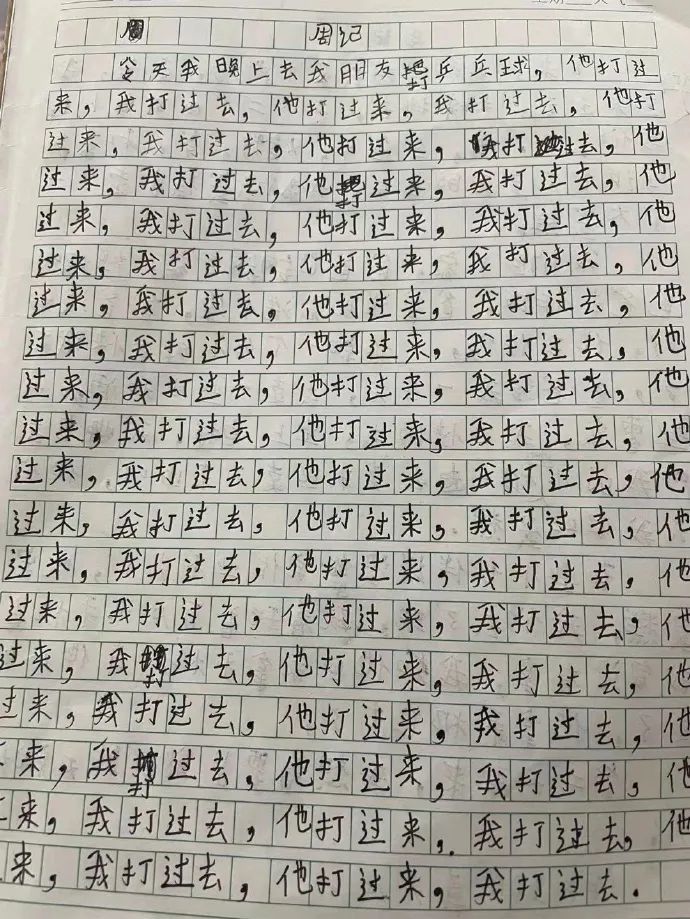 周记
今天我晚上去我朋友打乒乓球，他打过
来，我打过去，他打过来，我打过去，他打
过来，我打过去，他打过来，我打过去，他
过来，我打过去，他打过来，我打过去，他
过来，我打过去，他打过来，我打过去，他
过来，我打过去，他打过来，我打过去，他
过来，我打过去，他打过来，我打过去，他
过来，我打过去，他打过来，我打过去，他
过来，我打过去，他打过来，我打过去，他
过来，我打过去，他打过来，我打过去，他
过来，我打过去，他打过来，我打过去，他
过来，我打过去，他打过来，我打过去，他
过来，我打过去，他打过来，我打过去，他
过来，我打过去，他打过来，我打过去，他
过来，我打过去，他打过来，我打过去，他
过来，我打过去，他打过来，我打过去，他
来，我打过去，他打过来，我打过去，他
来，我打过去，他打过来，我打过去，他
来，我打过去，他打过来，我打过去.